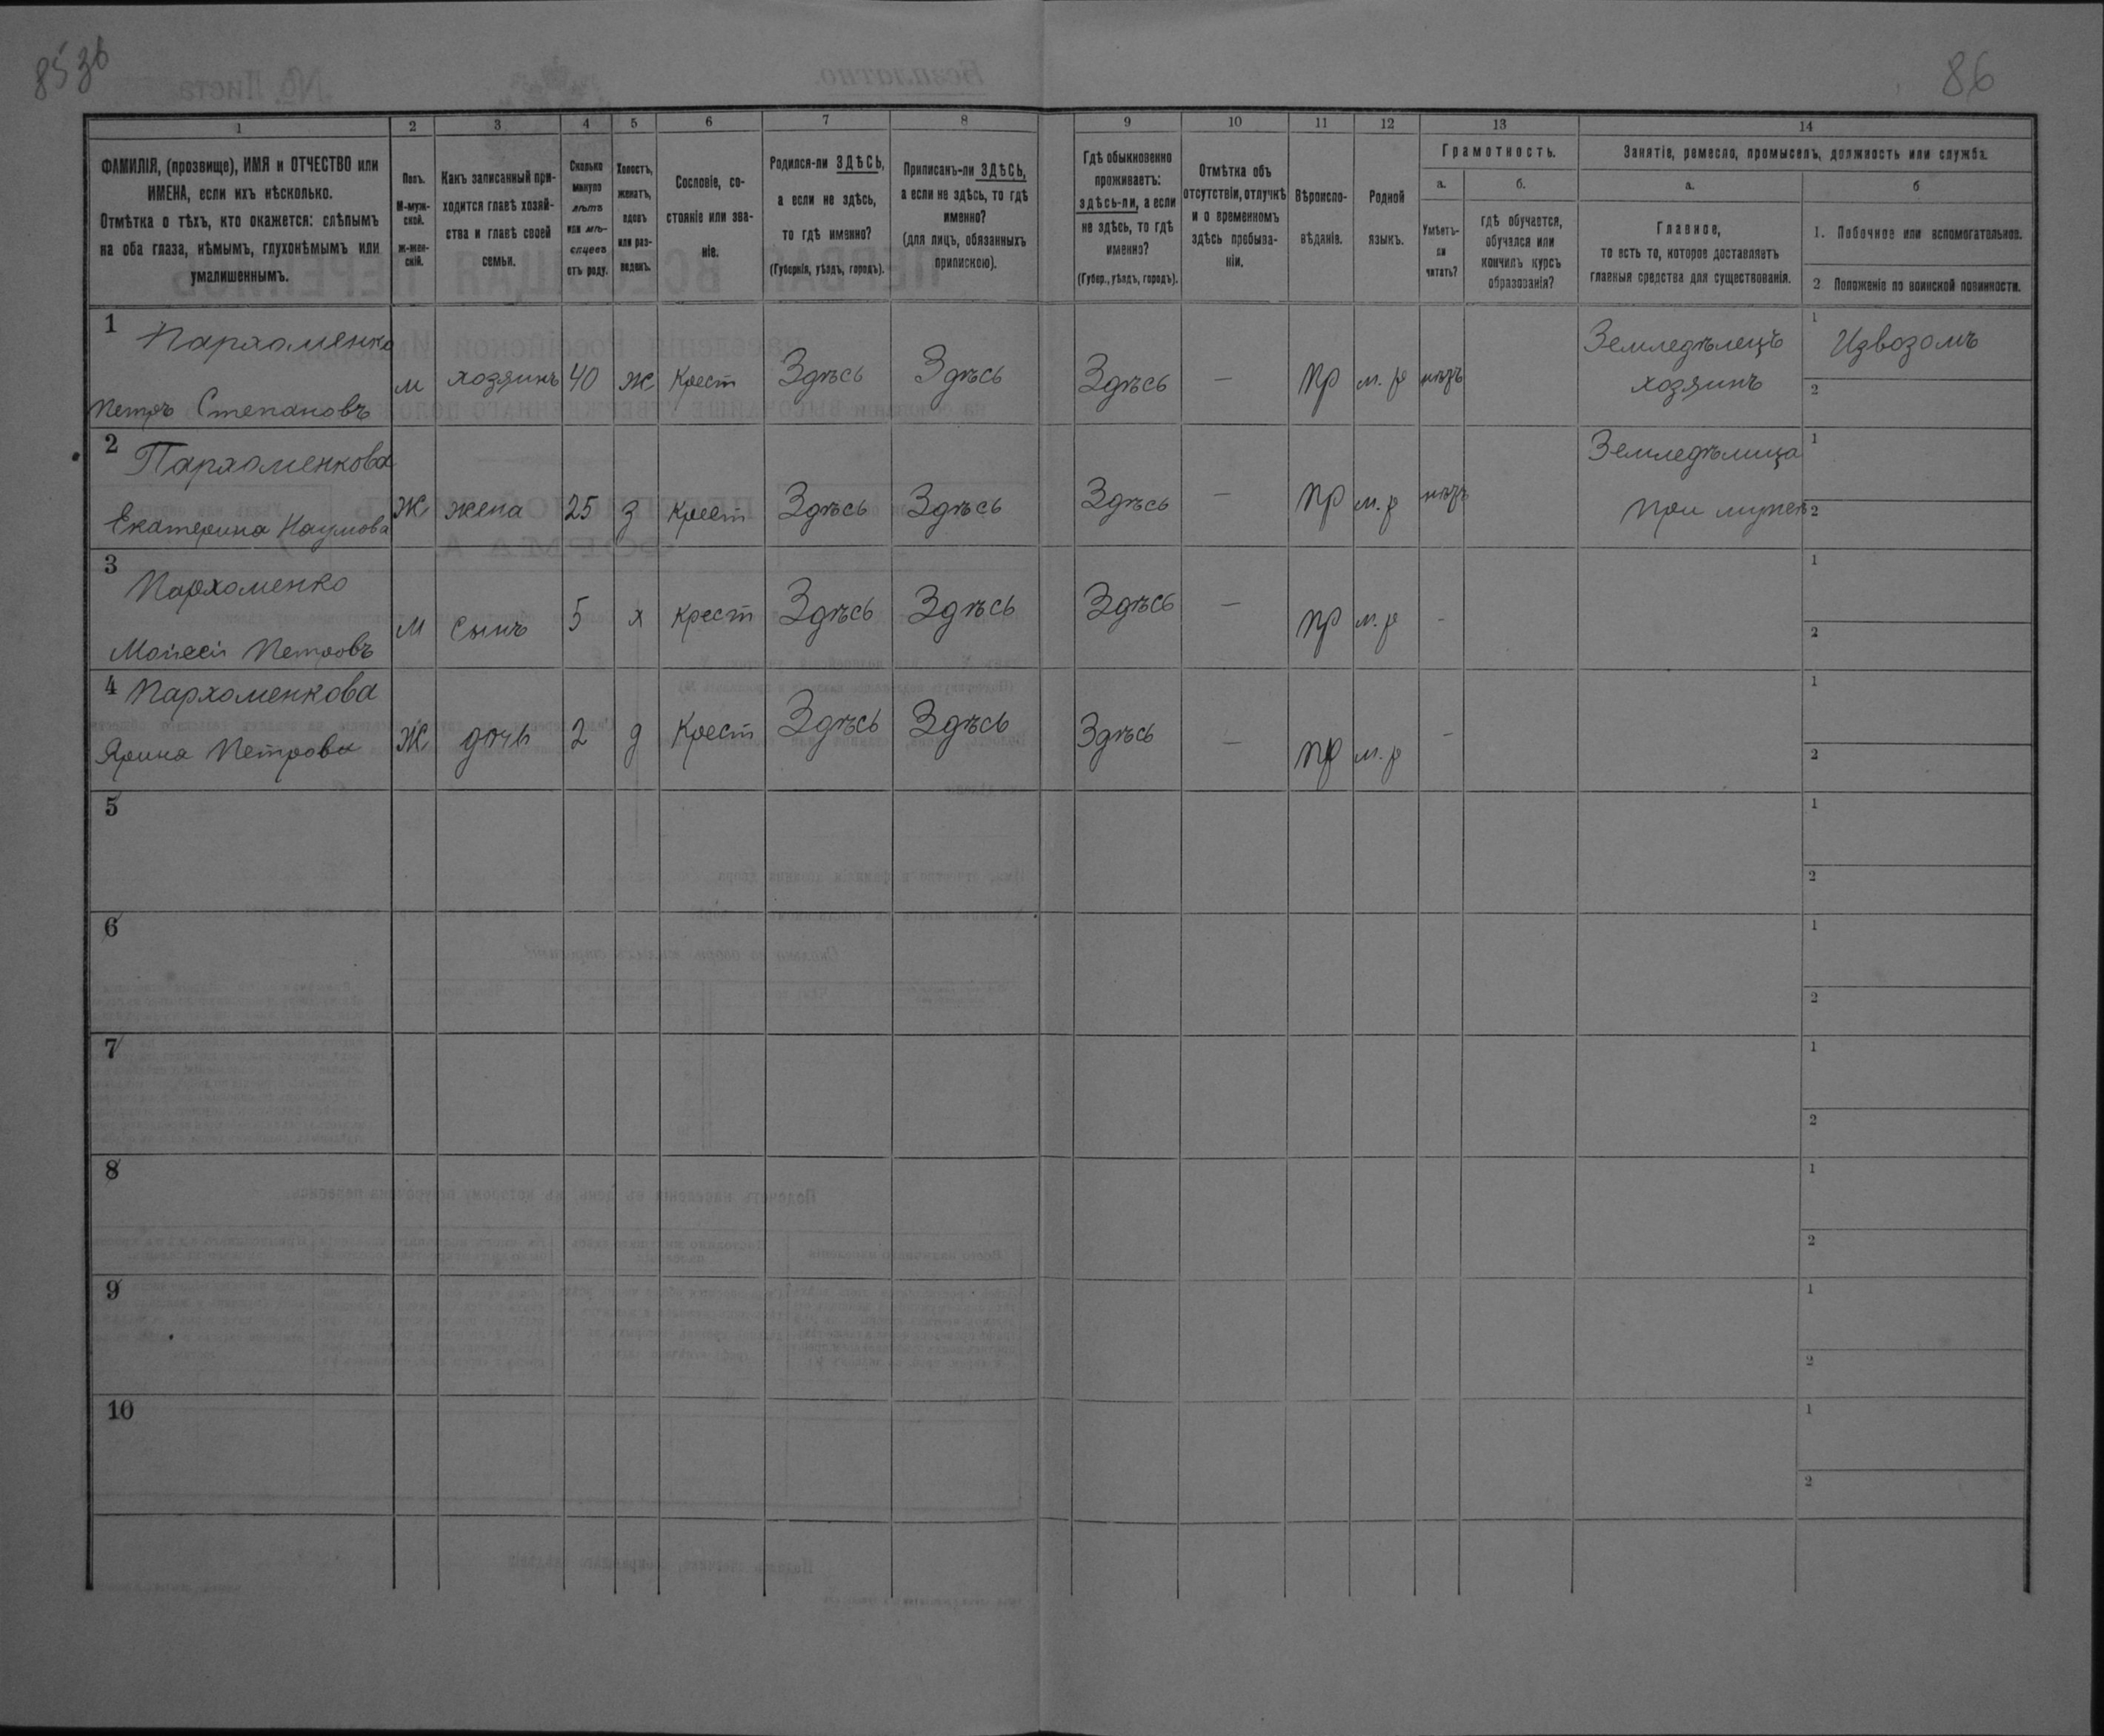 85 зв
86
1 2 3 4 5 6 7 8 9 10 11 12 13 14
ФАМИЛІЯ, (прозвище), ИМЯ и ОТЧЕСТВО или
ИМЕНА, если ихъ нѣсколько.
Отмѣтка о тѣхъ, кто окажется: слѣпымъ
на оба глаза, нѣмымъ, глухонѣмымъ или
умалишеннымъ.
Полъ.
М-муж-
ской.
ж-жен-
скій.
Какъ записанный при-
ходится главѣ хозяй-
ства и главѣ своей
семьи.
Сколько
минуло
лѣтъ
или мѣ-
сяцевъ
отъ роду.
Холостъ,
женатъ,
вдовъ
или раз-
веденъ.
Сословіе, со-
стояніе или зва-
ніе.
Родился-ли ЗДѢСЬ,
а если не здѣсь,
то гдѣ именно?
(Губернія, уѣздъ, городъ).
Приписанъ-ли ЗДѢСЬ,
а если не здѣсь, то гдѣ
именно?
(для лицъ, обязанныхъ
припискою).
Гдѣ обыкновенно
проживаетъ:
здѣсь-ли, а если
не здѣсь, то гдѣ
именно?
(Губер., уѣздъ, городъ).
Отмѣтка объ
отсутствіи, отлучкѣ
и о временномъ
здѣсь пребыва-
ніи.
Вѣроиспо-
вѣданіе.
Родной
языкъ.
Грамотность.
а.
Умѣетъ-
ли
читать?
б.
гдѣ обучается,
обучался или
кончилъ курсъ
образованія?
Занятіе, ремесло, промыселъ, должность или служба.
а.
Главное,
то есть то, которое доставляетъ
главныя средства для существованія.
б
1. Побочное или вспомогательное.
2 Положеніе по воинской повинности.
1 Пархоменко
Петръ Степановъ
м хозяинъ 40 ж Крест Здѣсь Здѣсь Здѣсь — пр м. р нѣтъ
Земледѣлецъ
хозяинъ
1 Извозомъ
2
2 Пархоменкова
Екатерина Наумова
Ж жена 25 з Крест Здѣсь Здѣсь Здѣсь — пр м. р нѣтъ
Земледѣлица
при мужѣ
1
2
3 Пархоменко
Моисей Петровъ
М Сынъ 5 х Крест Здѣсь Здѣсь Здѣсь — пр м. р -
1
2
4 Пархоменкова
Ярина Петрова
Ж дочь 2 д Крест Здѣсь Здѣсь Здѣсь — пр м. р -
1
2
5
1
2
6
1
2
7
1
2
8
1
2
9
1
2
10
1
2